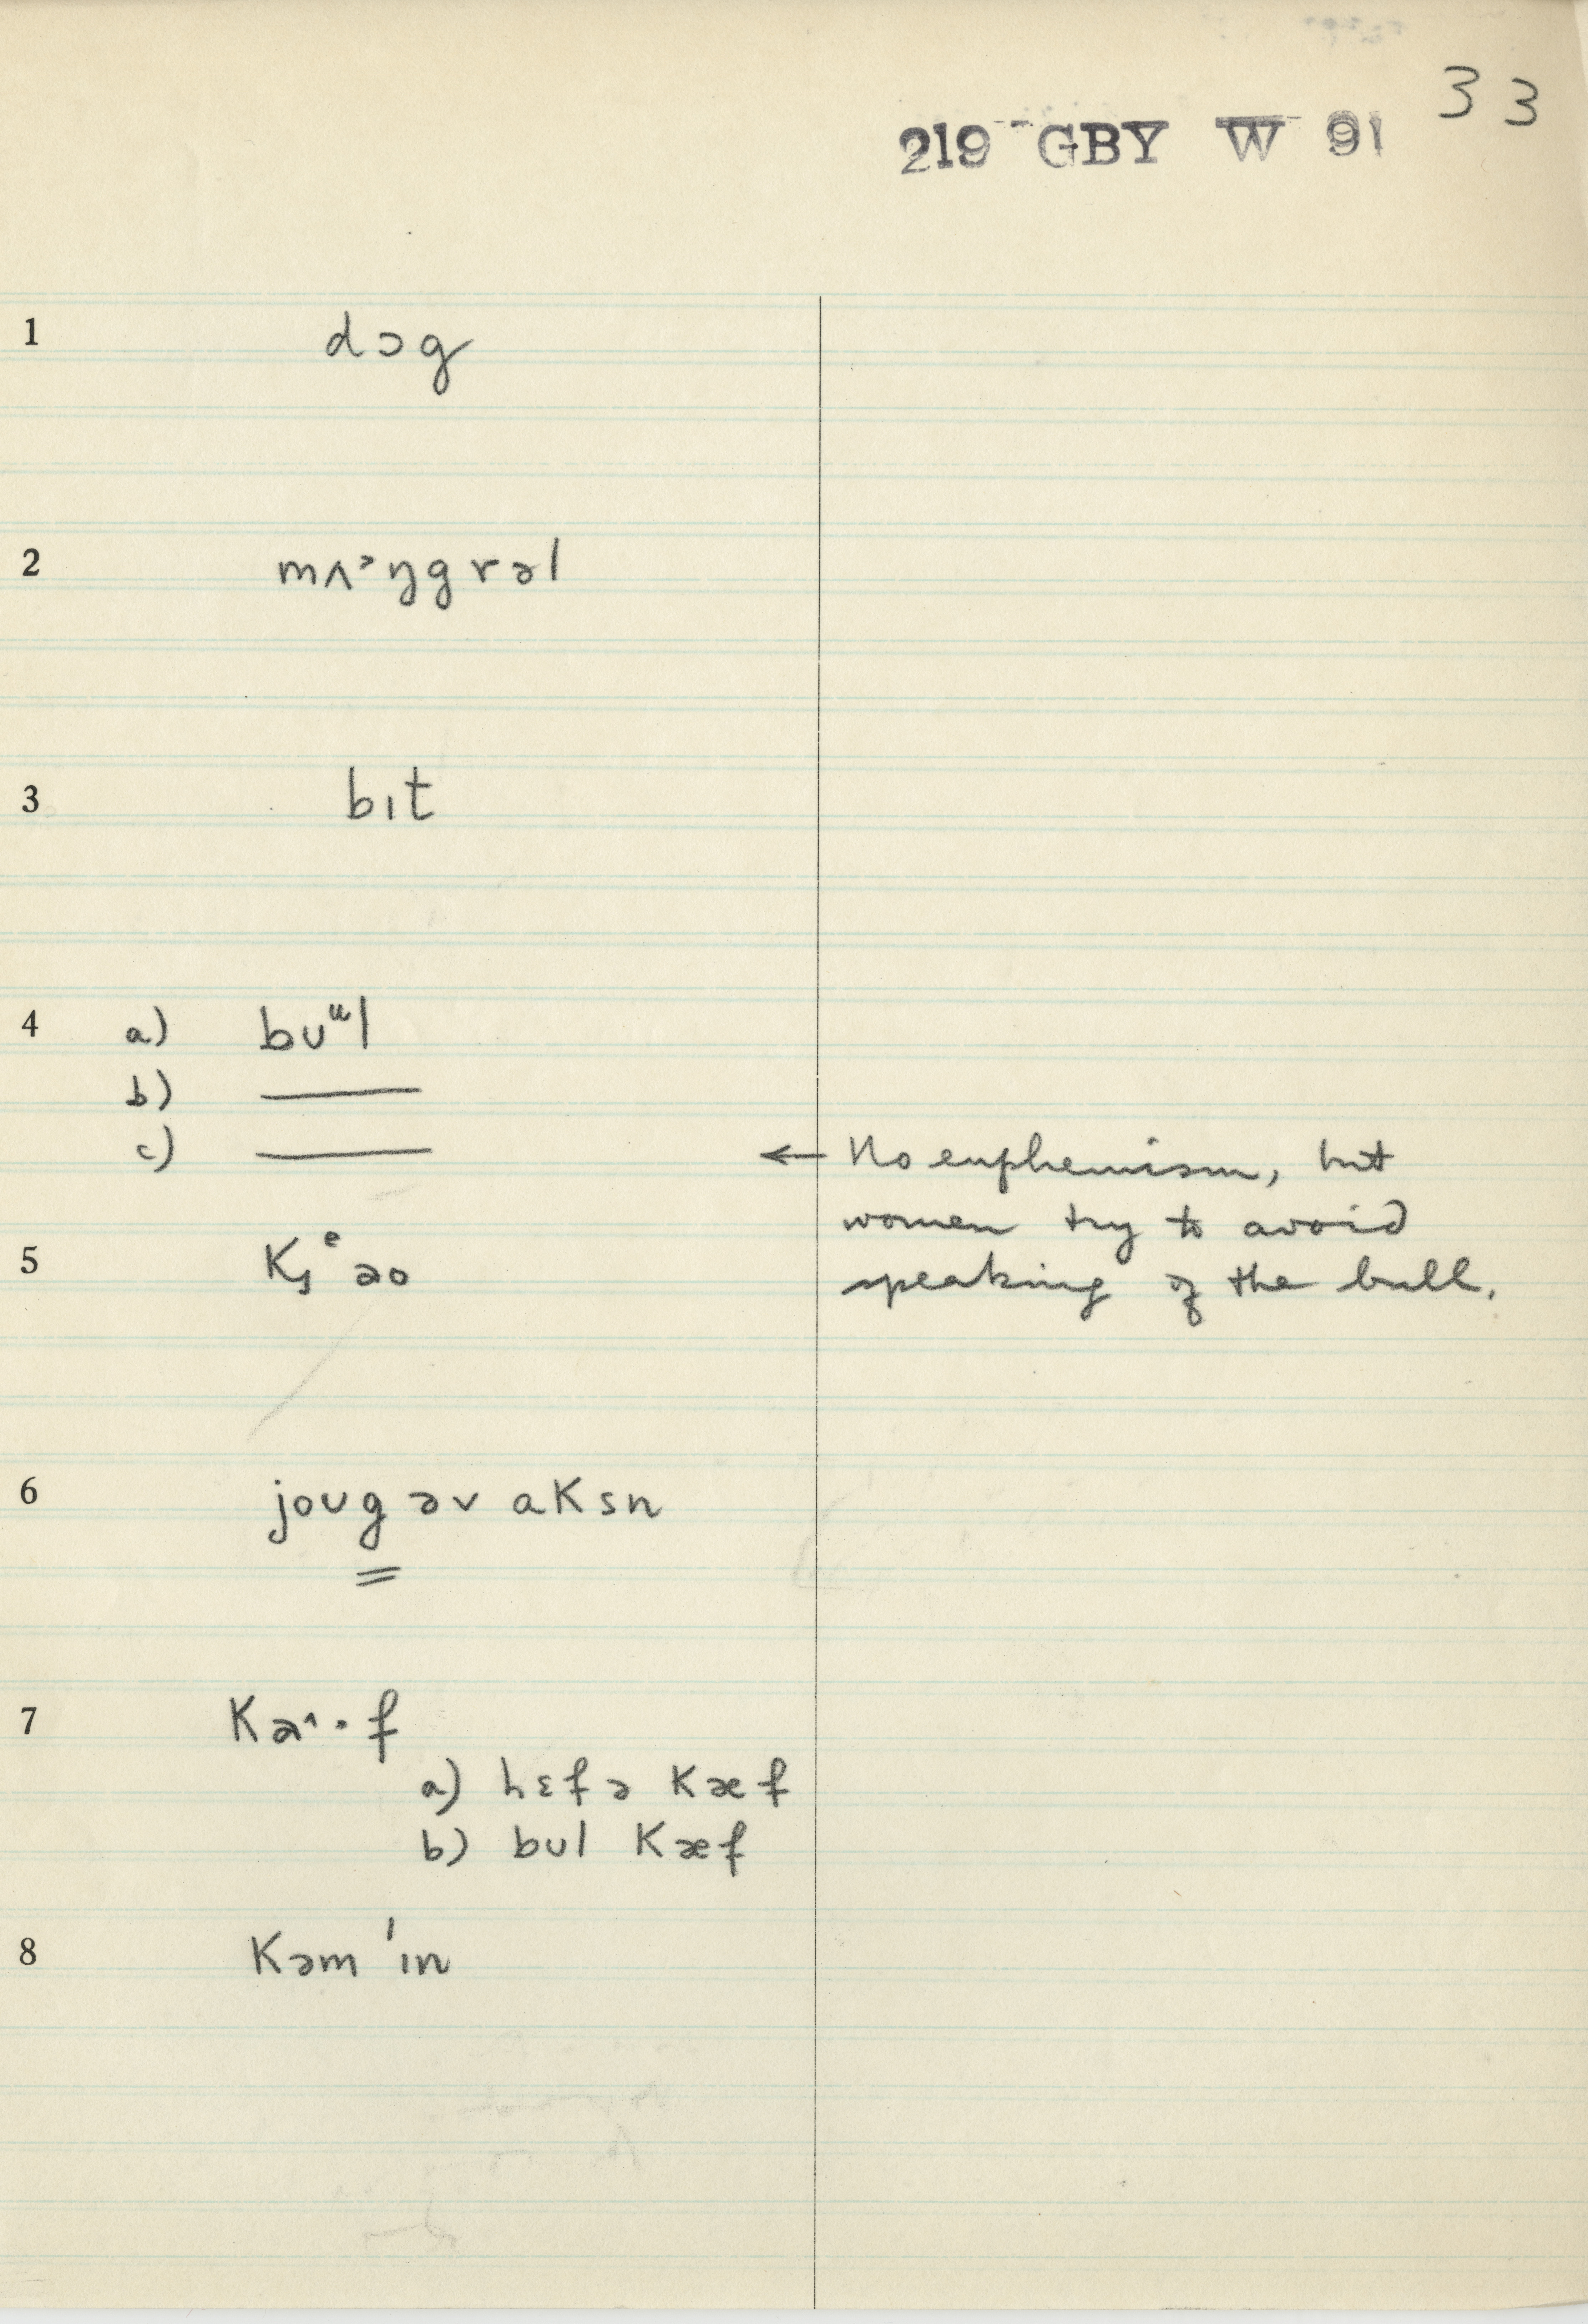 33
219 GBY W 91
1 dɔg
2 mʌᵊŋgrəl
3 bɪt
4 a) bᴜᵘl
b) ———
c) ——— ← No euphemism, but
women try to avoid
speaking of the bull.
5
6 joᴜg əv aksn
7
a) hɛfə kæf
b) bᴜl kæf
8 kəm 'ɪn